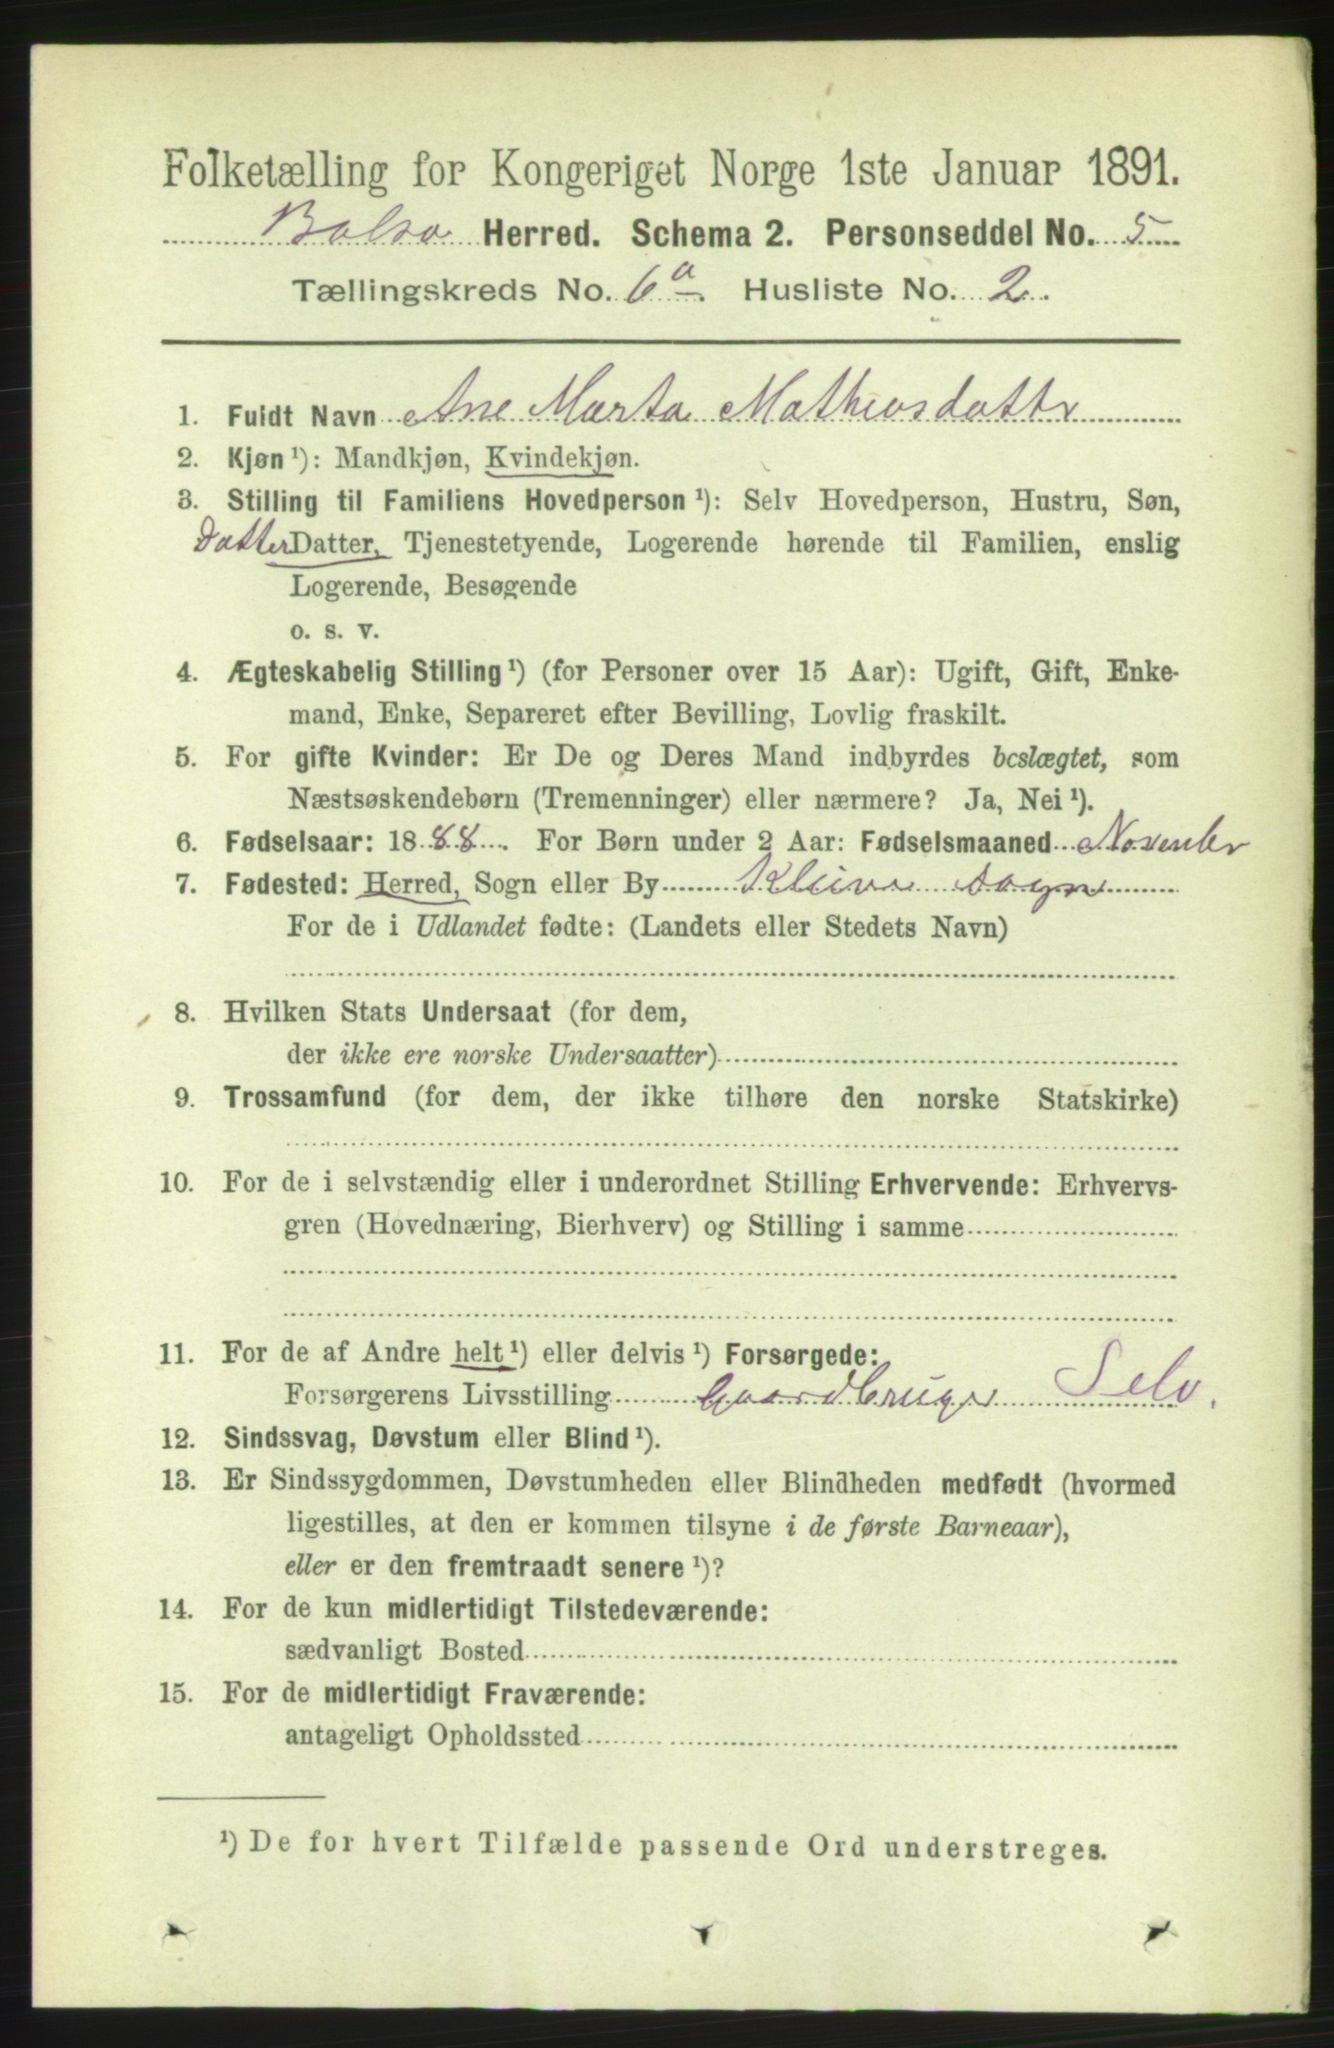 Folketælling for Kongeriget Norge 1ste Januar 1891.
Bolsø Herred. Schema 2. Personseddel No. 5
Tællingskreds No. 6a. Husliste No. 2.
1. Fuldt Navn Ane Marta Mathiasdattr
2. Kjøn ¹): Mandkjøn, Kvindekjøn.
3. Stilling til Familiens Hovedperson ¹): Selv Hovedperson, Hustru, Søn,
datter Datter, Tjenestetyende, Logerende hørende til Familien, enslig
Logerende, Besøgende
o. s. v.
4. Ægteskabelig Stilling ¹) (for Personer over 15 Aar): Ugift, Gift, Enke-
mand, Enke, Separeret efter Bevilling, Lovlig fraskilt.
5. For gifte Kvinder: Er De og Deres Mand indbyrdes beslægtet, som
Næstsøskendebørn (Tremenninger) eller nærmere? Ja, Nei ¹).
6. Fødselsaar: 1888. For Børn under 2 Aar: Fødselsmaaned November
7. Fødested: Herred, Sogn eller By Kleive sogn
For de i Udlandet fødte: (Landets eller Stedets Navn)
8. Hvilken Stats Undersaat (for dem,
der ikke ere norske Undersaatter)
9. Trossamfund (for dem, der ikke tilhøre den norske Statskirke)
10. For de i selvstændig eller i underordnet Stilling Erhvervende: Erhvervs-
gren (Hovednæring, Bierhverv) og Stilling i samme
11. For de af Andre helt ¹) eller delvis ¹) Forsørgede:
Forsørgerens Livsstilling Gaardbruger Selv.
12. Sindssvag, Døvstum eller Blind ¹).
13. Er Sindssygdommen, Døvstumheden eller Blindheden medfødt (hvormed
ligestilles, at den er kommen tilsyne i de første Barneaar),
eller er den fremtraadt senere ¹)?
14. For de kun midlertidigt Tilstedeværende:
sædvanligt Bosted
15. For de midlertidigt Fraværende:
antageligt Opholdssted
¹) De for hvert Tilfælde passende Ord understreges.